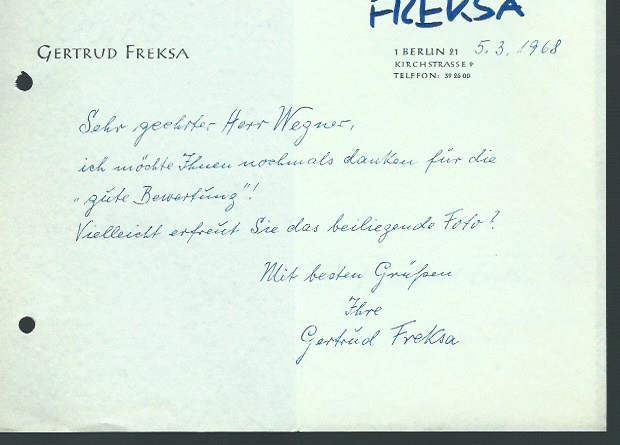 FREKSA
GERTRUD FREKSA
1 BERLIN 21 5.3.1968
KIRCHSTRASSE 9
TELEFON: 39 26 00
Sehr geehrter Herr Wegner,
ich möchte Ihnen nochmals danken für die
„gute Bewertung"!
Vielleicht erfreut Sie das beiliegende Foto?
Mit besten Grüßen
Ihre
Gertrud Freksa